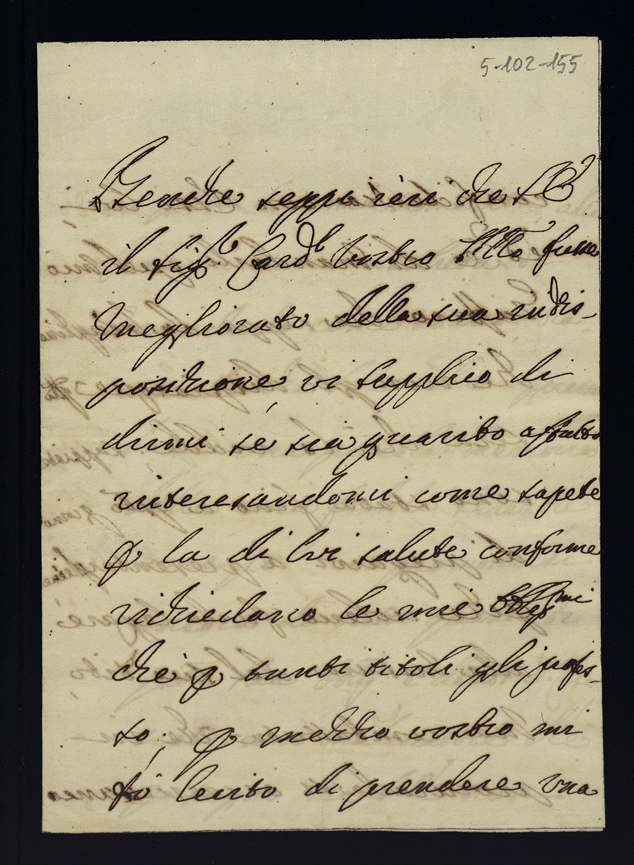 5-102-155
Benche seppi ieri che S.E.
il Sig.r Card.l Vostro fusse
megliorato della sua indis-
posizione, vi supplico di
dirmi se sia guarito affatto
interesandomi come sapete
p la di lui salute conforme
richiedano le mie
che p tanti titoli gli profes-
so; p mezzo vostro mi
fò lecito di prendere una